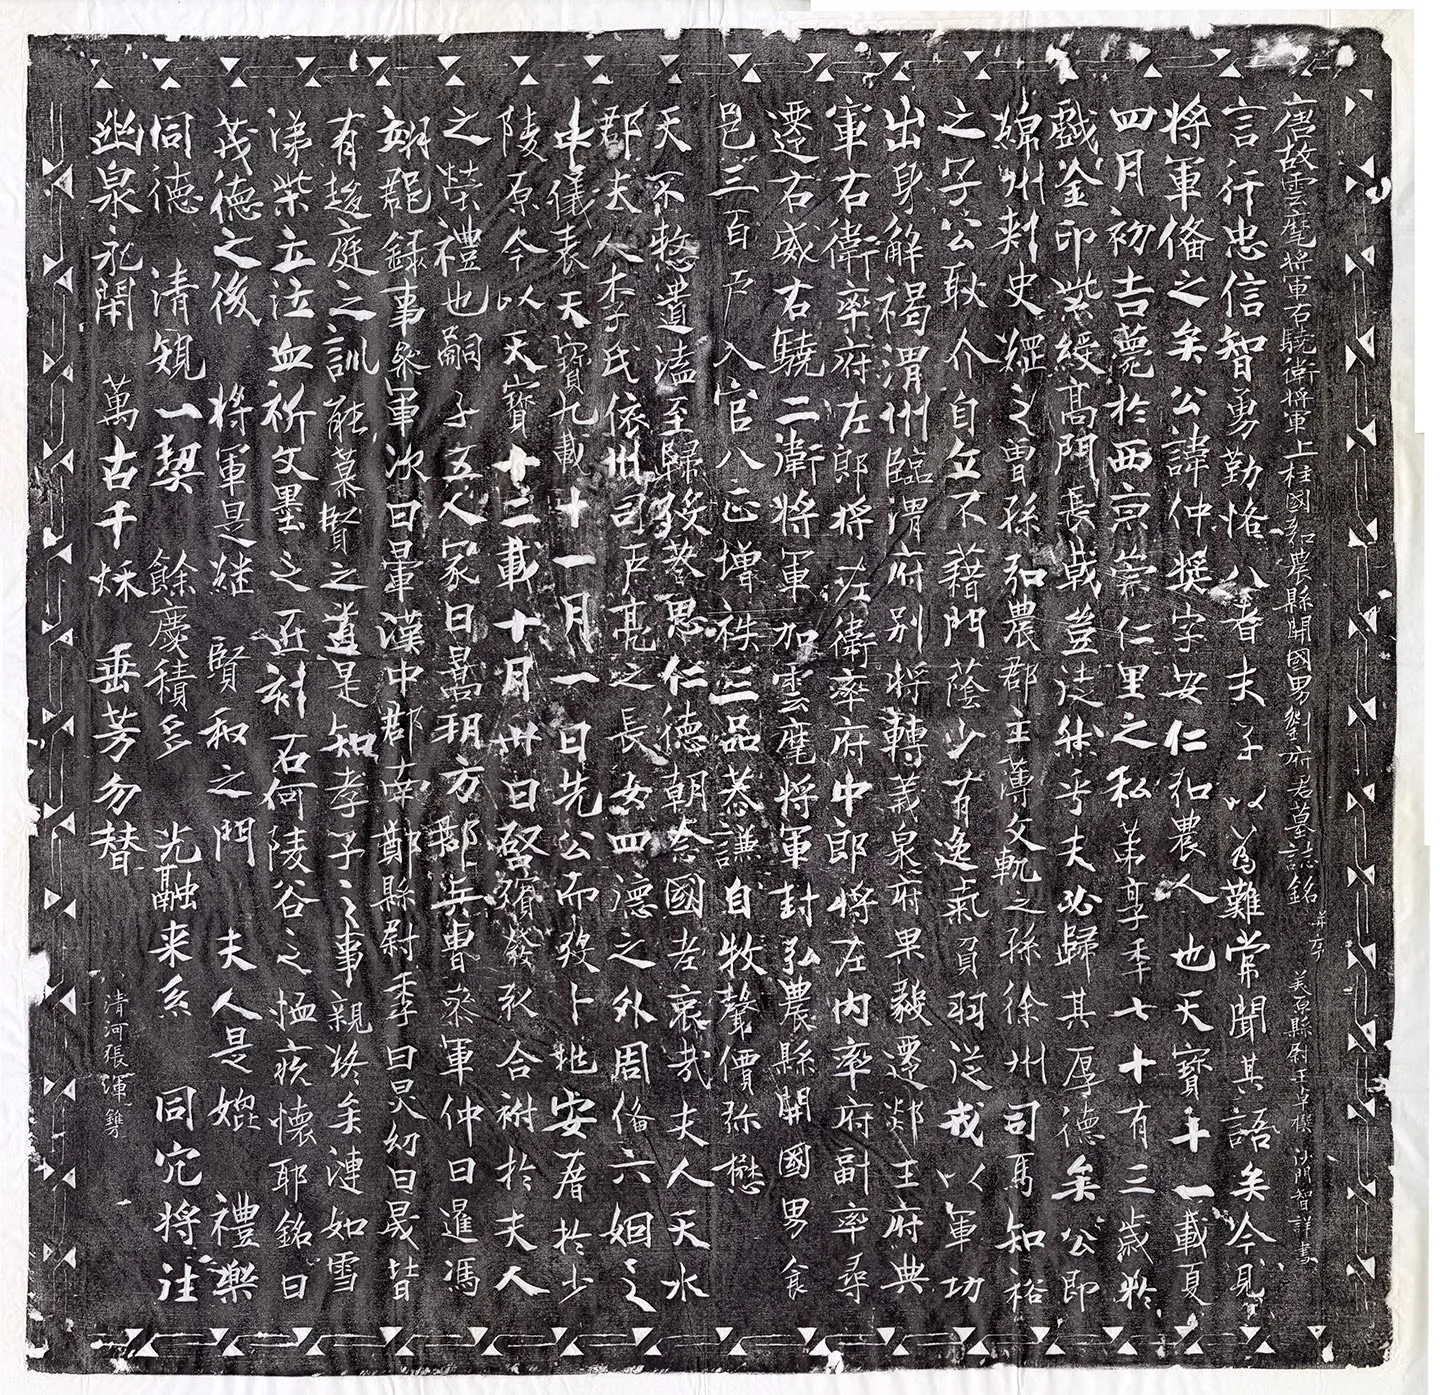 唐故雲麾將軍右驍衛將軍上柱國弘農縣開國男劉府君墓誌銘 并序 美原縣尉王卓撰 沙門智詳書
言行忠信智勇勤恪八者夫子以為難常聞其語矣今見
將軍俻之矣公諱仲獎字安仁弘農人也天寶十一載夏
四月初吉薨於西京崇仁里之私苐享年七十有三歲於
戲金印紫綬高門長戟豈徒然乎夫必歸其厚德矣公即
綿州刾史耀之曾孫弘農郡主薄文軌之孫徐州司馬知裕
之子公耿介自立不藉門蔭少有逸氣負羽從戎以軍功
出身解褐渭州臨渭府别將轉義泉府果毅遷郯王府典
軍右衛率府左郎將左衛率府中郎將左內率府副率尋
遷右威右驍二衛將軍加雲麾將軍封弘農縣開國男食
邑三百戶入官八正增袟三品恭謙自牧聲價弥懋
天不慭遺溘至歸歿教思仁德朝忝國老哀哉夫人天水
郡夫人李氏依州司戶亮之長女四德之外周俻六姻之
中儀表天寶九載十一月一日先公而歿卜兆安厝於少
陵原今以天寶十二載十月卅日啓殯發引合祔於夫人
之塋禮也嗣子五人冢曰暠朔方郡兵曹叅軍仲曰暹馮
翊郡錄事叅軍次曰暈漢中郡南鄭縣尉季曰炅幼曰晟皆
有趍庭之訓能慕賢之道是知孝子之事親終矣漣如雪
涕柴立泣血祈文墨之匠刻石何陵谷之搵疚懷耶銘曰
茂德之後 將軍是継 賢和之門 夫人是媲 禮樂
同德 清規一契 餘慶積多 光融来系 同穴將註
幽泉永閟 萬古千秌 垂芳勿替 清河張渾鐫